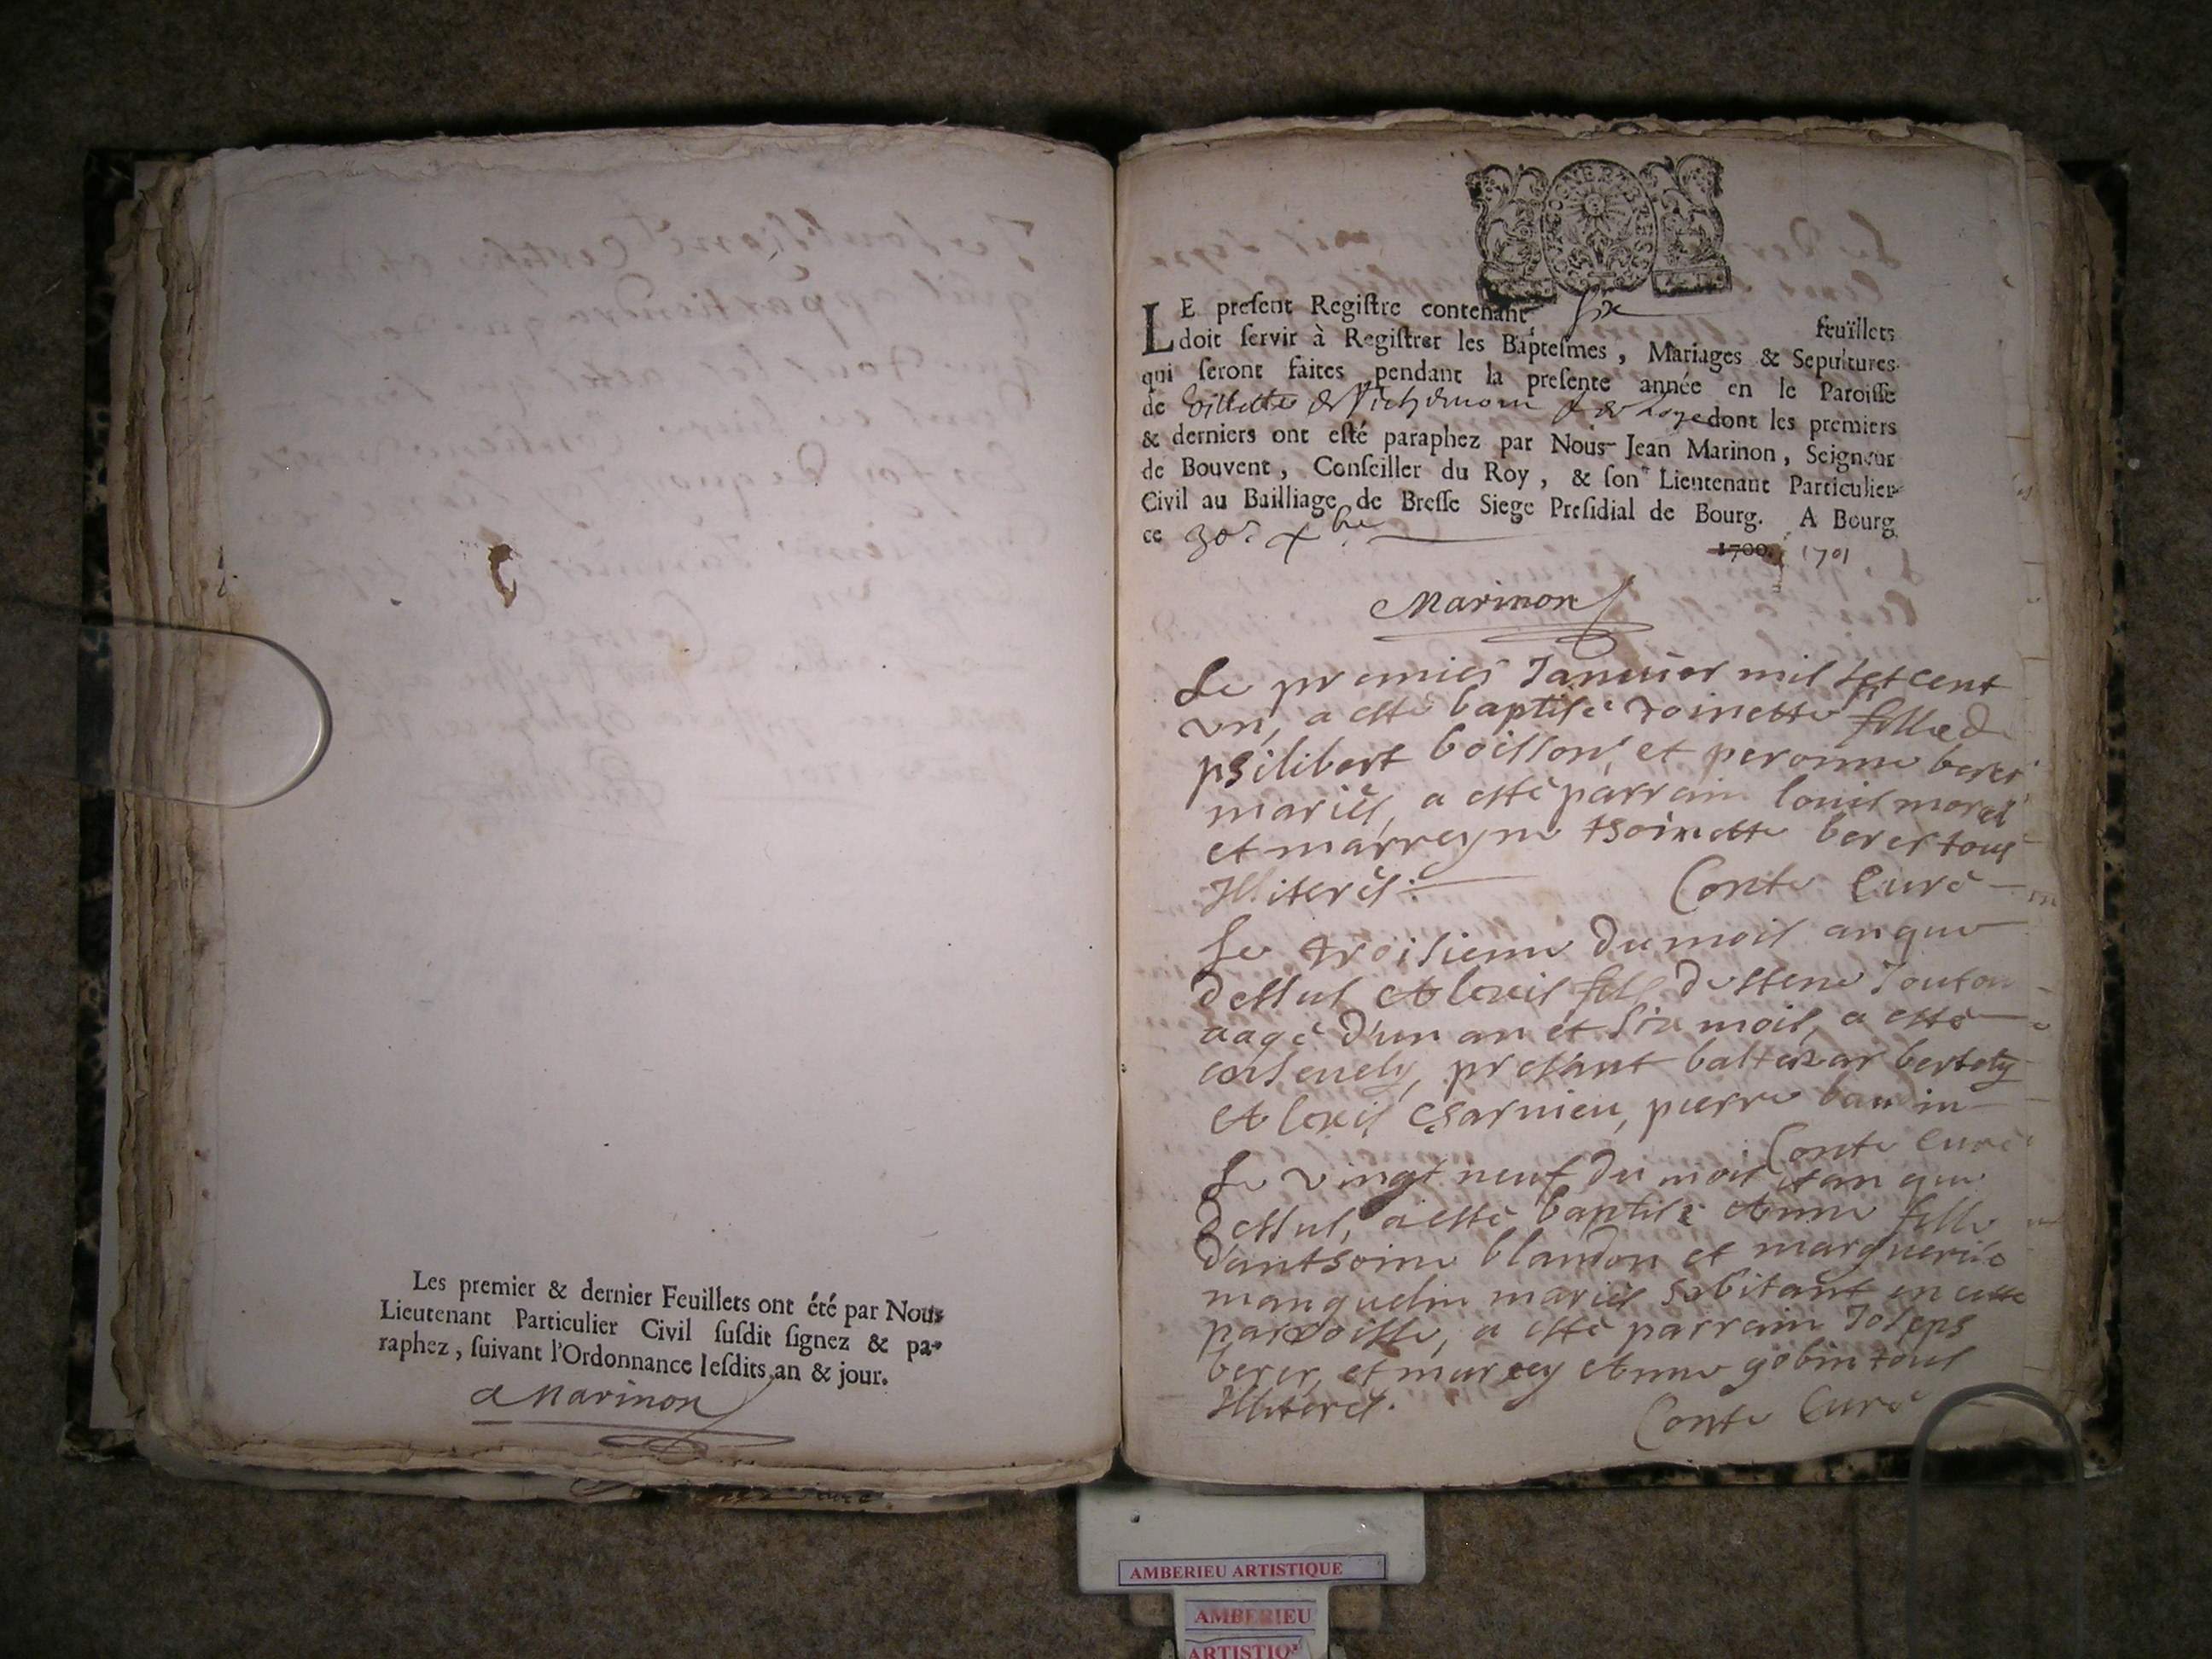 Les premier & dernier Feuillets ont été par Nous
Lieutenant Particulier Civil ſuſdit ſignez & pa-
raphez, ſuivant l'Ordonnance leſdits an & jour.
Marinon
LE preſent Regiſtre contenant six feuïllets
doit ſervir à Regiſtrer les Bapteſmes, Mariages & Sepultures
qui ſeront faites pendant la preſente année en le Paroiſſe
de Villette & Richemont & de Loye dont les premiers
& derniers ont eſté paraphez par Nous Jean Marinon, Seigneur
de Bouvent, Conſeiller du Roy, & ſon Lieutenant Particulier
Civil au Bailliage de Breſſe Siege Preſidial de Bourg. A Bourg
ce 30e xbre
1700. 1701
Marinon
Le premier Januier mil sept cent
vn, a esté baptisé toinette fille d
philibert boisson, et peronne berer
mariés, a esté parrain louis morel
et marreyne thoinette berer tous
Illiterés. Conte Curé
Le troisieme du mois an que
dessus Alexis fils
aagé d'un an et six mois, a esté
enseuely, presant baltezar
Alexis Charnieu, pierre baudin
Conte Curé
Le vingt neuf du mois et an que
dessus, a esté baptisé Anne fille
d'anthoine blandon et marguerite
manguelin mariés habitant en cette
parroisse, a esté parrain Joseph
berer, et marrey Anne gobin tous
Illiterés. Conte Curé
AMBERIEU ARTISTIQUE
AMBERIEU
ARTISTIQ